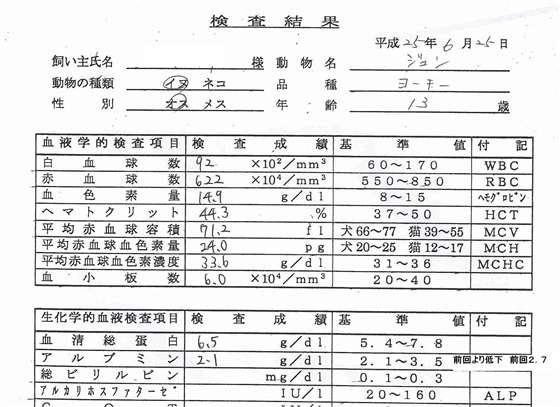 検査結果
平成25年6月25日
飼い主氏名 様 動物名 ジョン
動物の種類 イヌ ネコ 品種 ヨーキー
性別 オス メス 年齢 13 歳
血液学的検査項目 検査成績 基準値 付記
白血球数 92 ×10²/mm³ 60～170 WBC
赤血球数 622 ×10⁴/mm³ 550～850 RBC
血色素量 14.9 g/dl 8～15 ヘモグロビン
ヘマトクリット 44.3 .% 37～50 HCT
平均赤血球容積 71.2 fl 犬66～77 猫39～55 MCV
平均赤血球血色素量 24.0 pg 犬20～25 猫12～17 MCH
平均赤血球血色素濃度 33.6 g/dl 31～36 MCHC
血小板数 6.0 ×10⁴/mm³ 20～40
生化学的血液検査項目 検査成績 基準値
血清総蛋白 6.5 g/dl 5.4～7.8
アルブミン 2.1 g/dl 2.1～3.5 前回より低下 前回2.7
総ビリルビン mg/dl 0.1～0.3
アルカリホスファターゼ IU/l 20～160 ALP